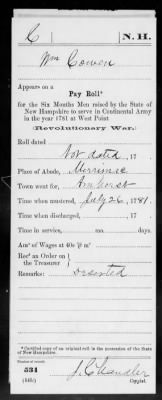 C N. H.
Wm Cowen
Appears on a
Pay Roll*
for the Six Months Men raised by the State of
New Hampshire to serve in Continental Army
in the year 1781 at West Point
(Revolutionary War.)
Roll dated
Not dated, 17 .
Place of Abode, Merrimac
Town went for, Amherst
Time when mustered, July 26, 1781.
Time when discharged, , 17 .
Time in service, mo. days.
Am't of Wages at 40s ₱ m°
Rec'd an Order on
the Treasurer
Remarks: Deserted
*Certified copy of an original roll in the possession of the State
of New Hampshire.
Number of record:
534
J. C. Chandler
Copyist.